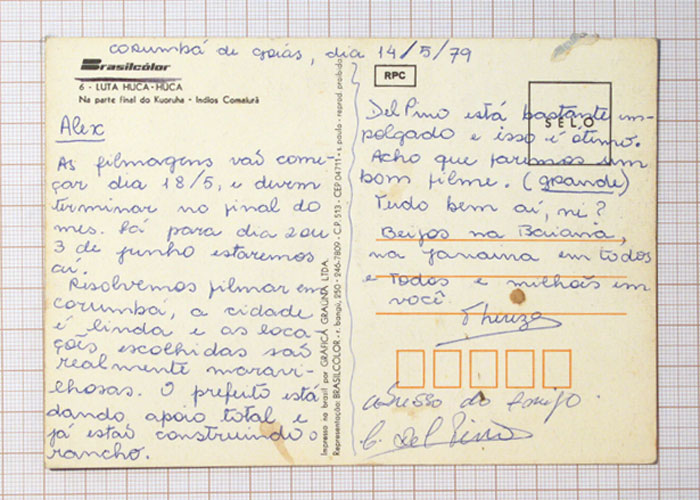 corumbá de goiás, dia 14/5/79
Brasilcolor
6 - LUTA HUCA-HUCA
Na parte final do Kuoruha - Indios Comaiurá
Alex
As filmagens vaõ come-
çar dia 18/5, e devem
terminar no final do
mes. Lá para dia 2 ou
3 de junho estaremos
aí.
Resolvemos filmar em
corumbá, a cidade
é linda e as loca
ções escolhidas saõ
realmente maravi-
lhosas. O prefeito está
dando apoio total e
já estaõ construindo o
rancho.
Impresso no brasil por GRÁFICA GRAÚNA LTDA.
Representação: BRASILCOLOR - r. bangú, 250 - 246-7809 - C.P. 513 - CEP 04711 - s. paulo - reprod. proibida
RPC
SELO
Del Pino está bastante em-
polgado e isso é ótimo.
Acho que faremos um
bom filme. (grande)
Tudo bem aí, né?
Beijos na Baiana,
na Janaina em todos
e todos e milhões em
você.
Thereza
do amigo
Del Pino